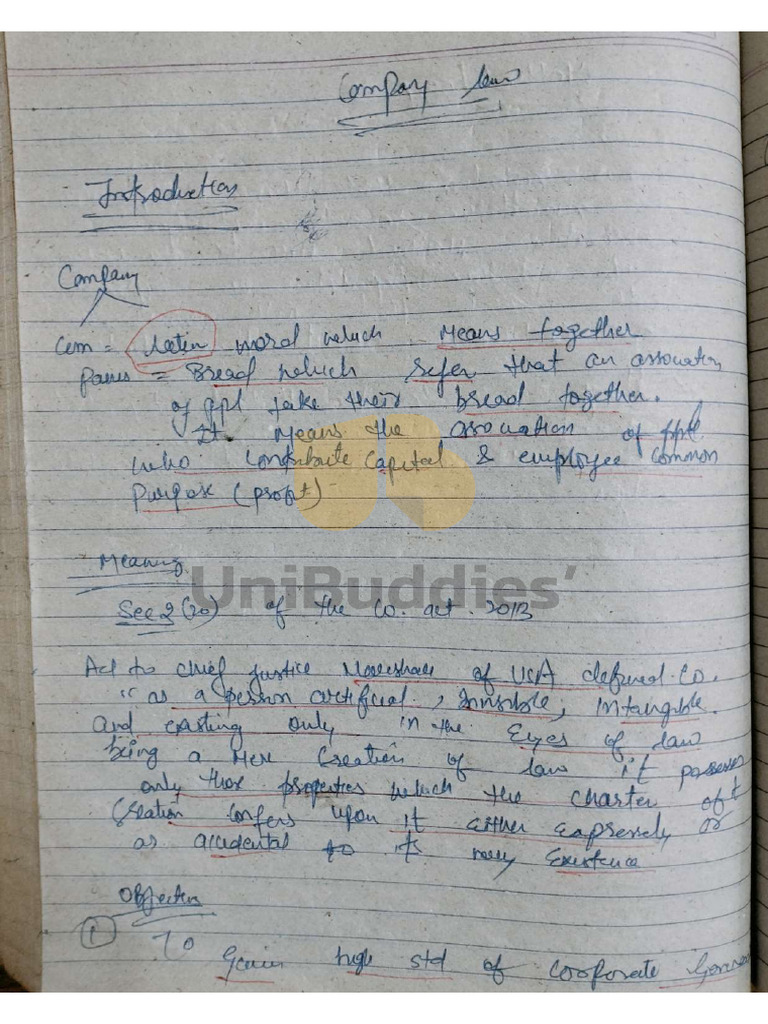 Company law
Introduction
Company
Com = Latin word which means together
panis = Bread which refer that an association
of ppl take their bread together.
It means the association of ppl
who contribute capital & employee common
Purpose (profit)
Meaning
UniBuddies'
Sec 2 (20) of the Co. act. 2013
Acc to chief justice of USA defined Co.
" as a person artificial, Invisible, Intangible.
and existing only in the Eyes of law
being a mere creation of law it possesses
only those properties which the charter of
creation confers upon it either expressely or
as accidental to its very Existence
Objectives
1 To Gain high std of corporate